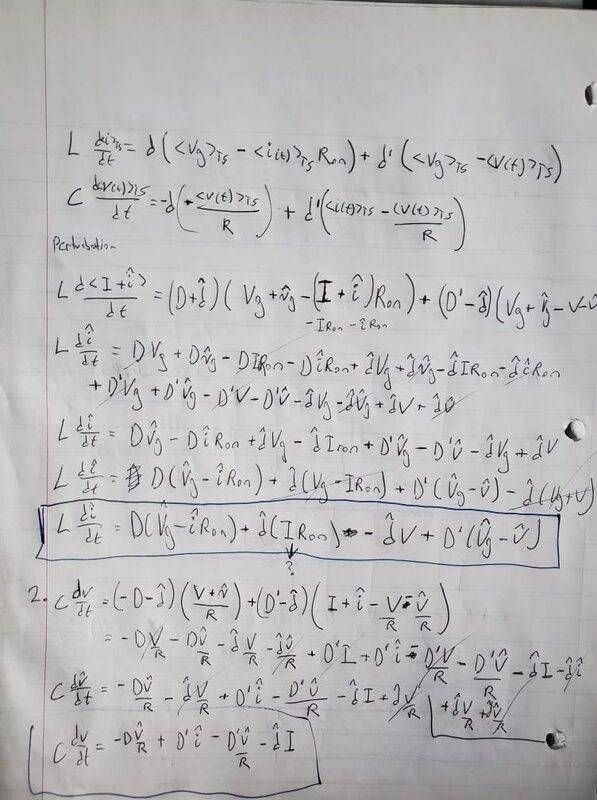 L d<i>Ts/dt = d(<Vg>Ts - <i(t)>Ts Ron) + d'(<Vg>Ts - <V(t)>Ts)
C d<V(t)>Ts/dt = -d(<V(t)>Ts/R) + d'(<i(t)>Ts - <V(t)>Ts/R)
Perturbation
L d<I + î>/dt = (D + d̂)(Vg + v̂g - (I + î)Ron) + (D' - d̂)(Vg + v̂g - V - v̂
-IRon - îRon
L dî/dt = DVg + Dv̂g - DIRon - DîRon + d̂Vg + d̂v̂g - d̂IRon - d̂îRon
+ D'Vg + D'v̂g - D'V - D'v̂ - d̂Vg - d̂v̂g + d̂V + d̂v̂
L dî/dt = Dv̂g - DîRon + d̂Vg - d̂Iron + D'v̂g - D'v̂ - d̂Vg + d̂V
L dî/dt = D(v̂g - îRon) + d̂(Vg - IRon) + D'(v̂g - v̂) - d̂(Vg + V)
L dî/dt = D(v̂g - îRon) + d̂(IRon) - d̂V + D'(v̂g - v̂)
?
2. C dv/dt = (-D - d̂)((V + v̂)/R) + (D' - d̂)(I + î - V/R - v̂/R)
= -DV/R - Dv̂/R - d̂V/R - d̂v̂/R + D'I + D'î - D'V/R - D'v̂/R - d̂I - d̂î
+ d̂V/R + d̂v̂/R
C dv̂/dt = -Dv̂/R - d̂V/R + D'î - D'v̂/R - d̂I + d̂V/R
C dv/dt = -Dv̂/R + D'î - D'v̂/R - d̂I